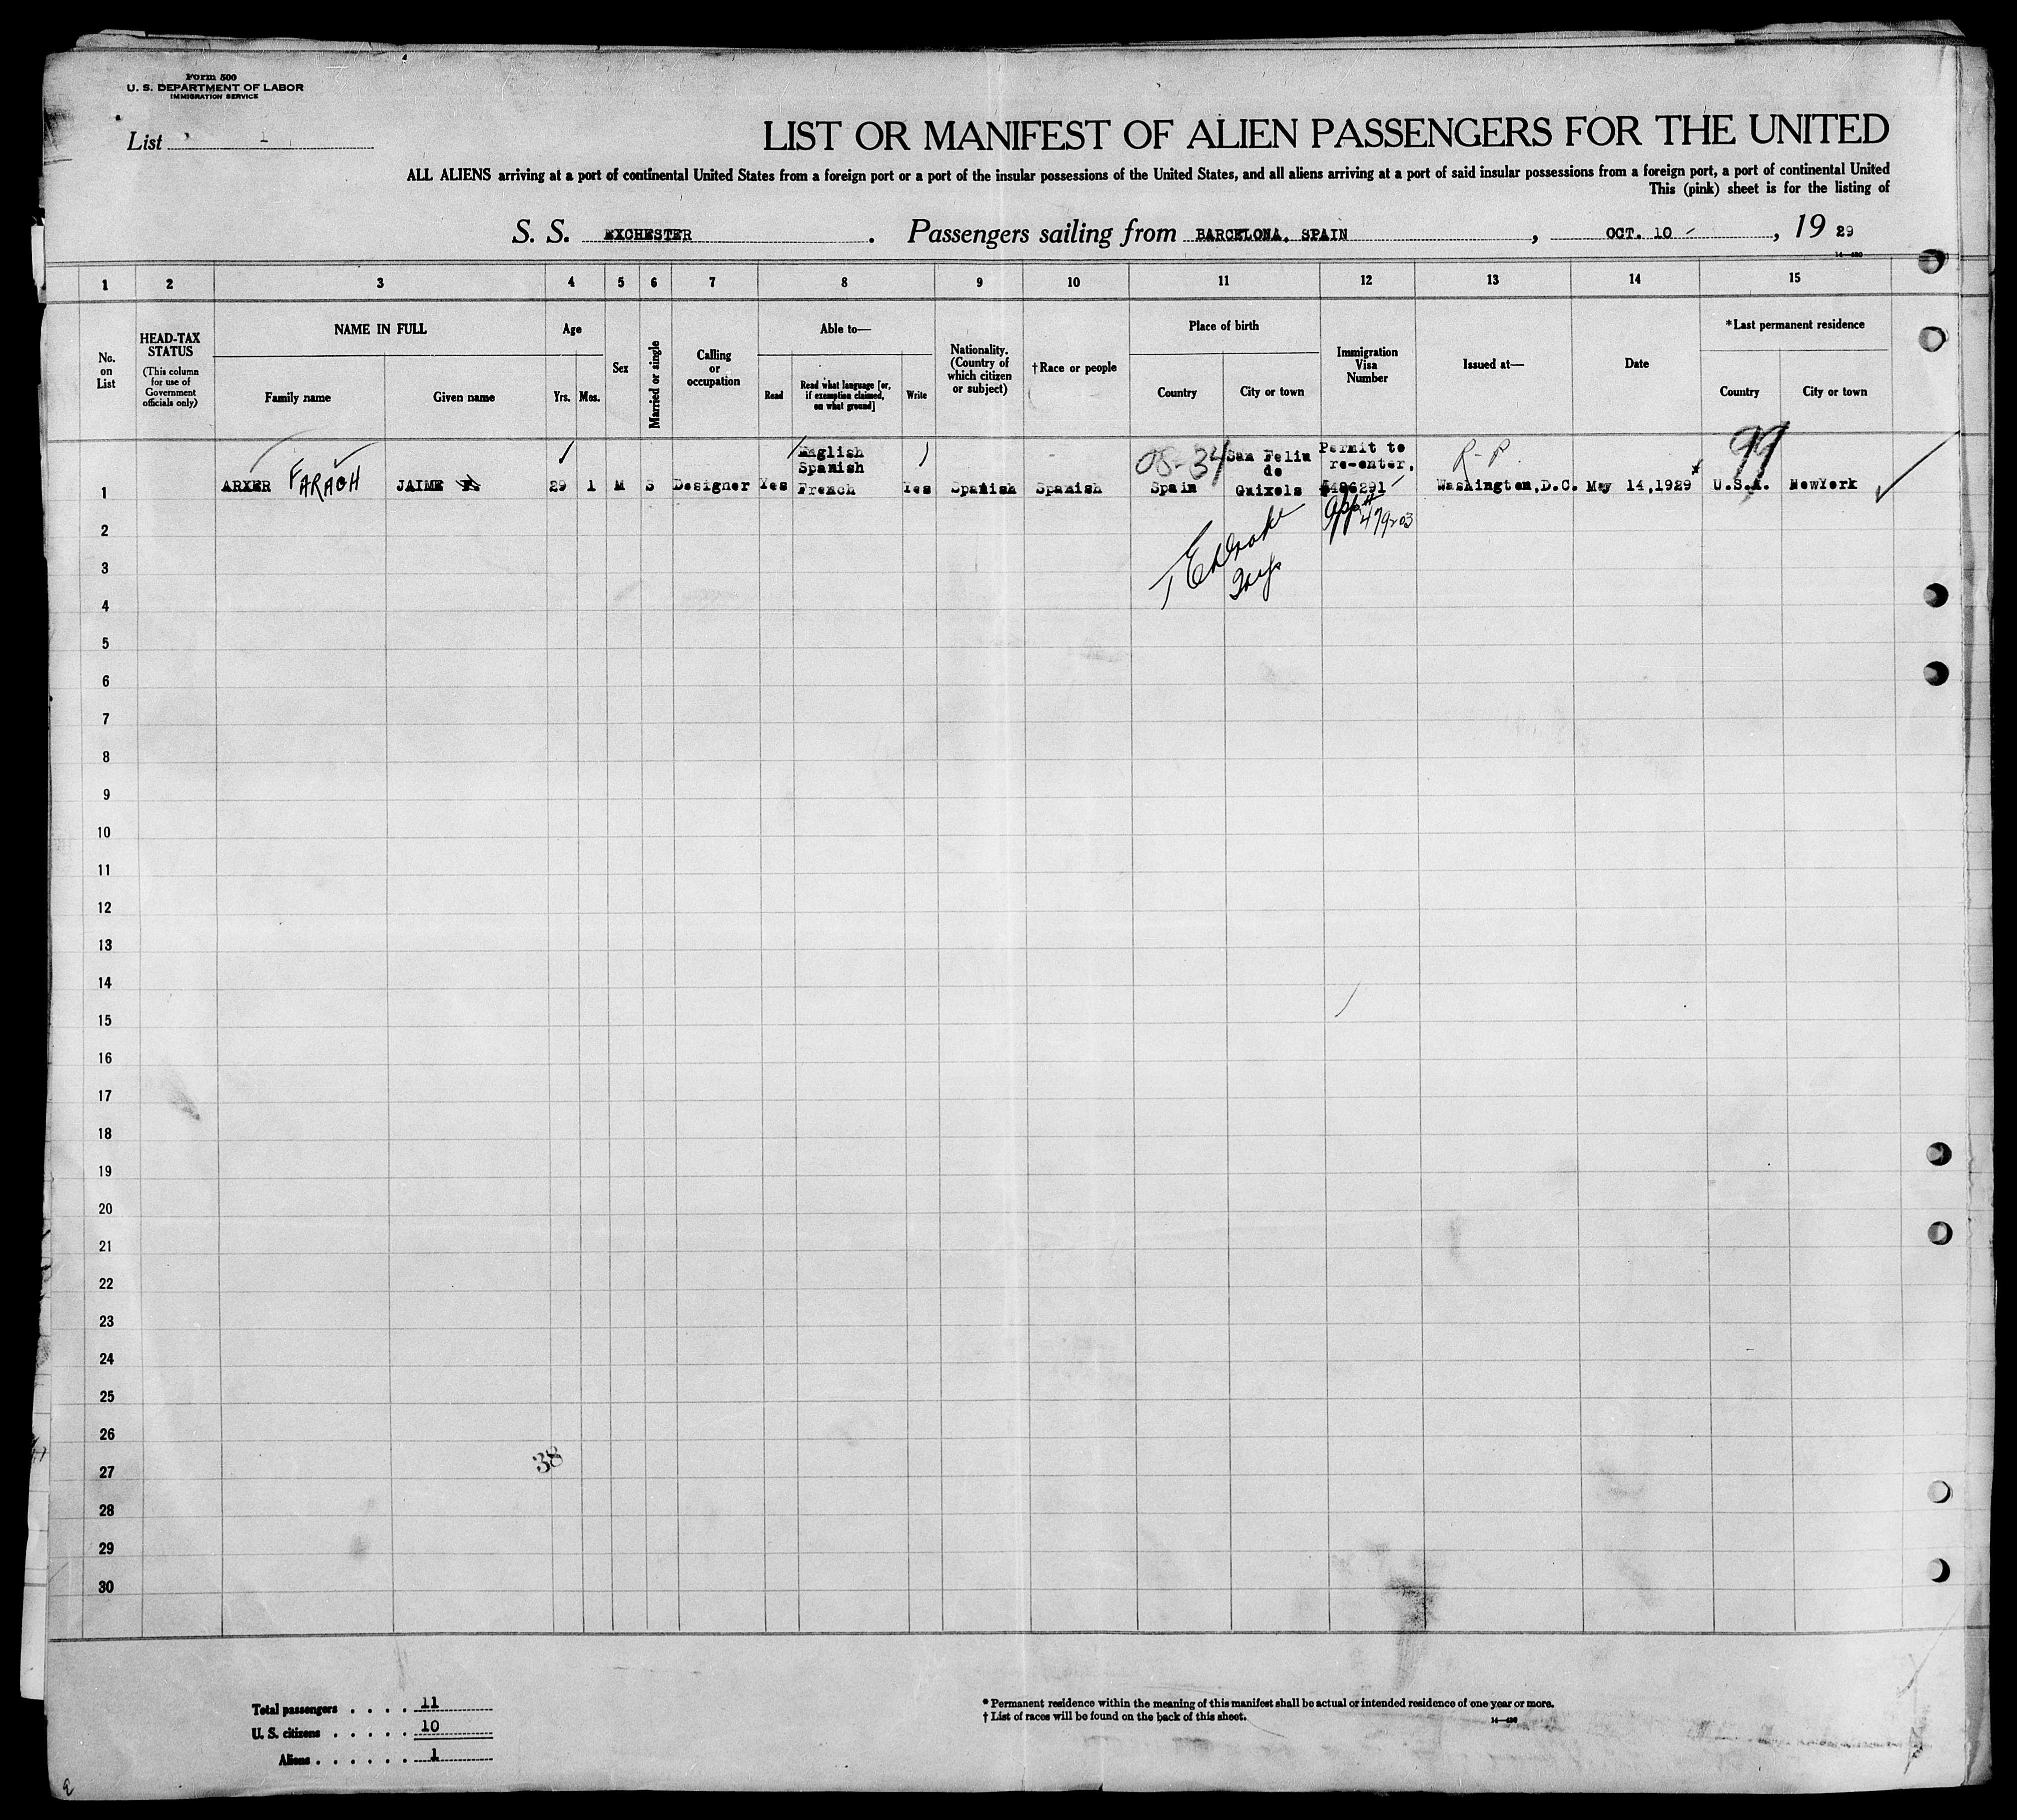 Form 500
U. S. DEPARTMENT OF LABOR
IMMIGRATION SERVICE
List 1
LIST OR MANIFEST OF ALIEN PASSENGERS FOR THE UNITED
ALL ALIENS arriving at a port of continental United States from a foreign port or a port of the insular possessions of the United States, and all aliens arriving at a port of said insular possessions from a foreign port, a port of continental United
This (pink) sheet is for the listing of
S. S. EXCHESTER. Passengers sailing from BARCELONA, SPAIN, OCT. 10, 19 29
14—430
1 2 3 4 5 6 7 8 9 10 11 12 13 14 15
No. on List
HEAD-TAX STATUS
(This column for use of Government officials only)
NAME IN FULL
Family name
Given name
Age
Yrs. Mos.
Sex
Married or single
Calling or occupation
Able to—
Read
Read what language [or, if exemption claimed, on what ground]
Write
Nationality. (Country of which citizen or subject)
†Race or people
Place of birth
Country
City or town
Immigration Visa Number
Issued at—
Date
*Last permanent residence
Country
City or town
1 ARXER FARAGH JAIME 29 1 M S Designer Yes English Spanish French Yes Spanish Spanish 08-34 Spain San Feliu de Guixols Permit to re-enter, 486291 R-P Washington, D.C. May 14, 1929 99 U.S.A. NewYork
479203
2
3
4
5
6
7
8
9
10
11
12
13
14
15
16
17
18
19
20
21
22
23
24
25
26
38
27
28
29
30
Total passengers . . . . 11
U. S. citizens . . . . . 10
Aliens . . . . . . 1
* Permanent residence within the meaning of this manifest shall be actual or intended residence of one year or more.
† List of races will be found on the back of this sheet.
14—430